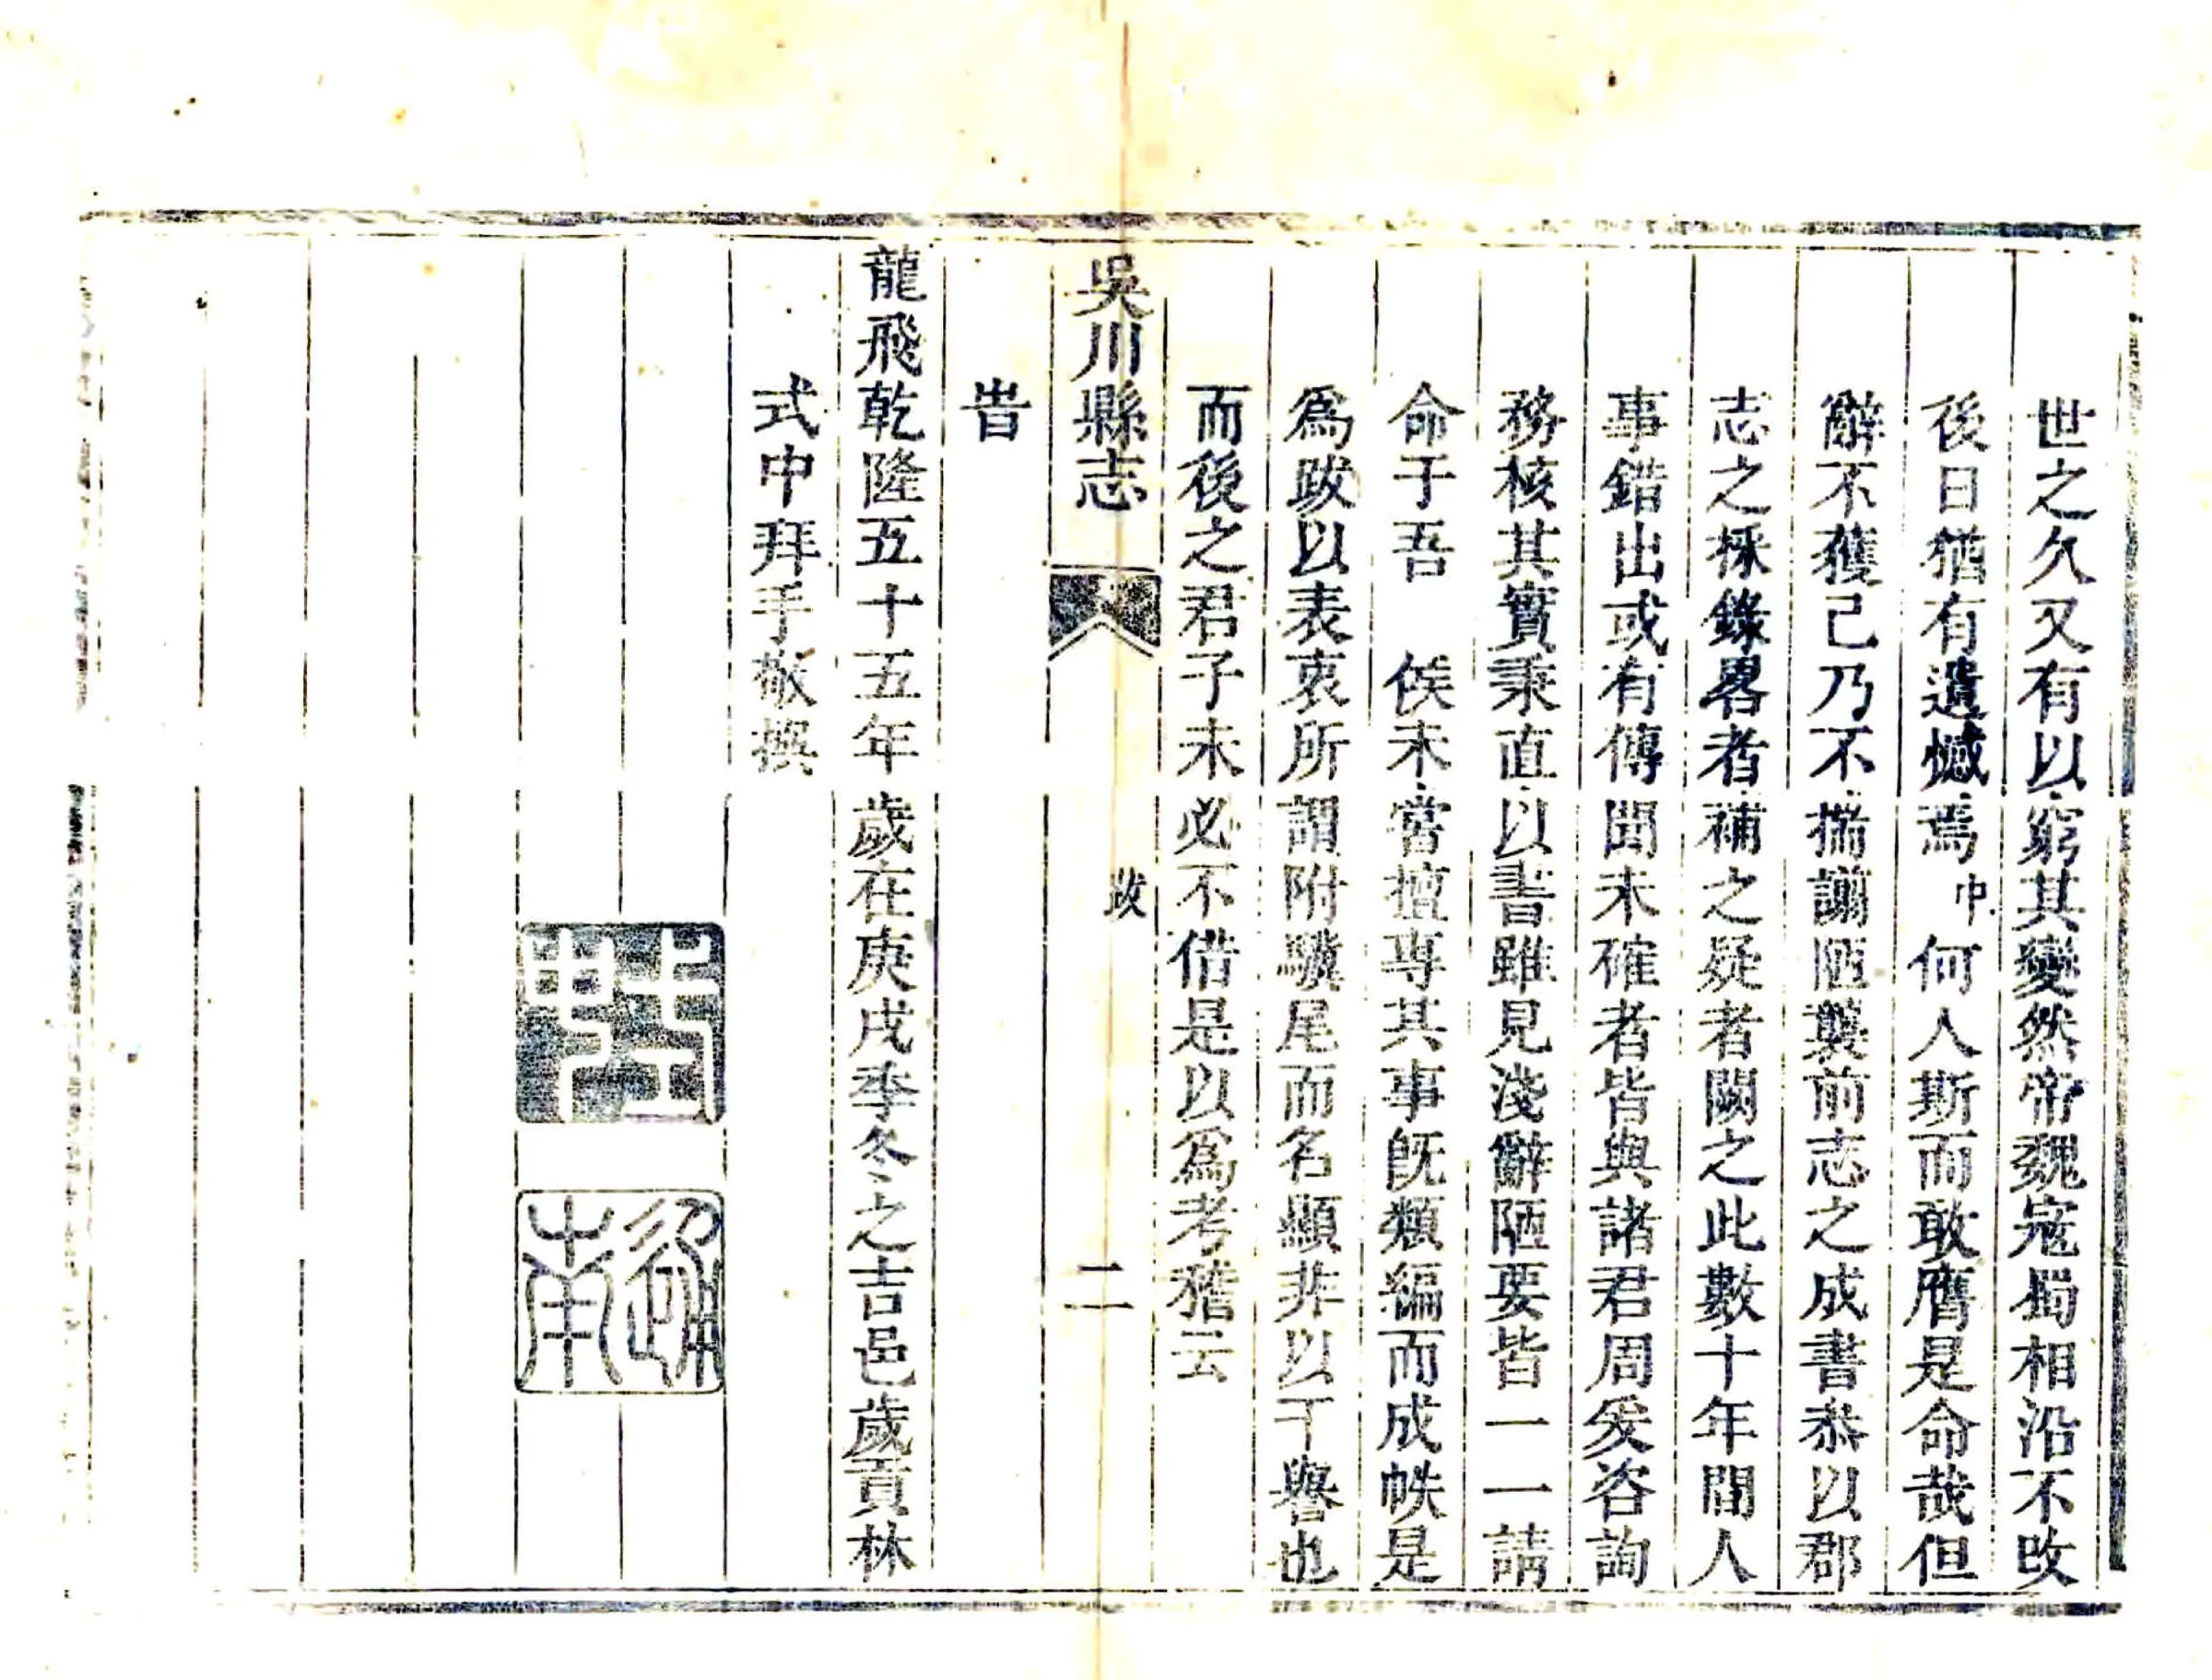 世之久又有以窮其變然帝魏寇蜀相沿不改
後日猶有遺憾焉中何人斯而敢膺是命哉但
辭不獲己乃不揣謭陋襲前志之成書叅以郡
志之採錄畧者補之疑者闕之此數十年間人
事錯出或有傳聞未確者皆與諸君周爰咨詢
務核其實秉直以書雖見淺辭陋要皆一一請
命于吾 侯未嘗擅専其事旣類編而成帙是
為跋以表衷所謂附驥尾而名顯非以干譽也
而後之君子未必不借是以為考稽云
吳川縣志 跋 二
旹
龍飛乾隆五十五年歲在庚戌季冬之吉邑歲貢林
式中拜手敬撰